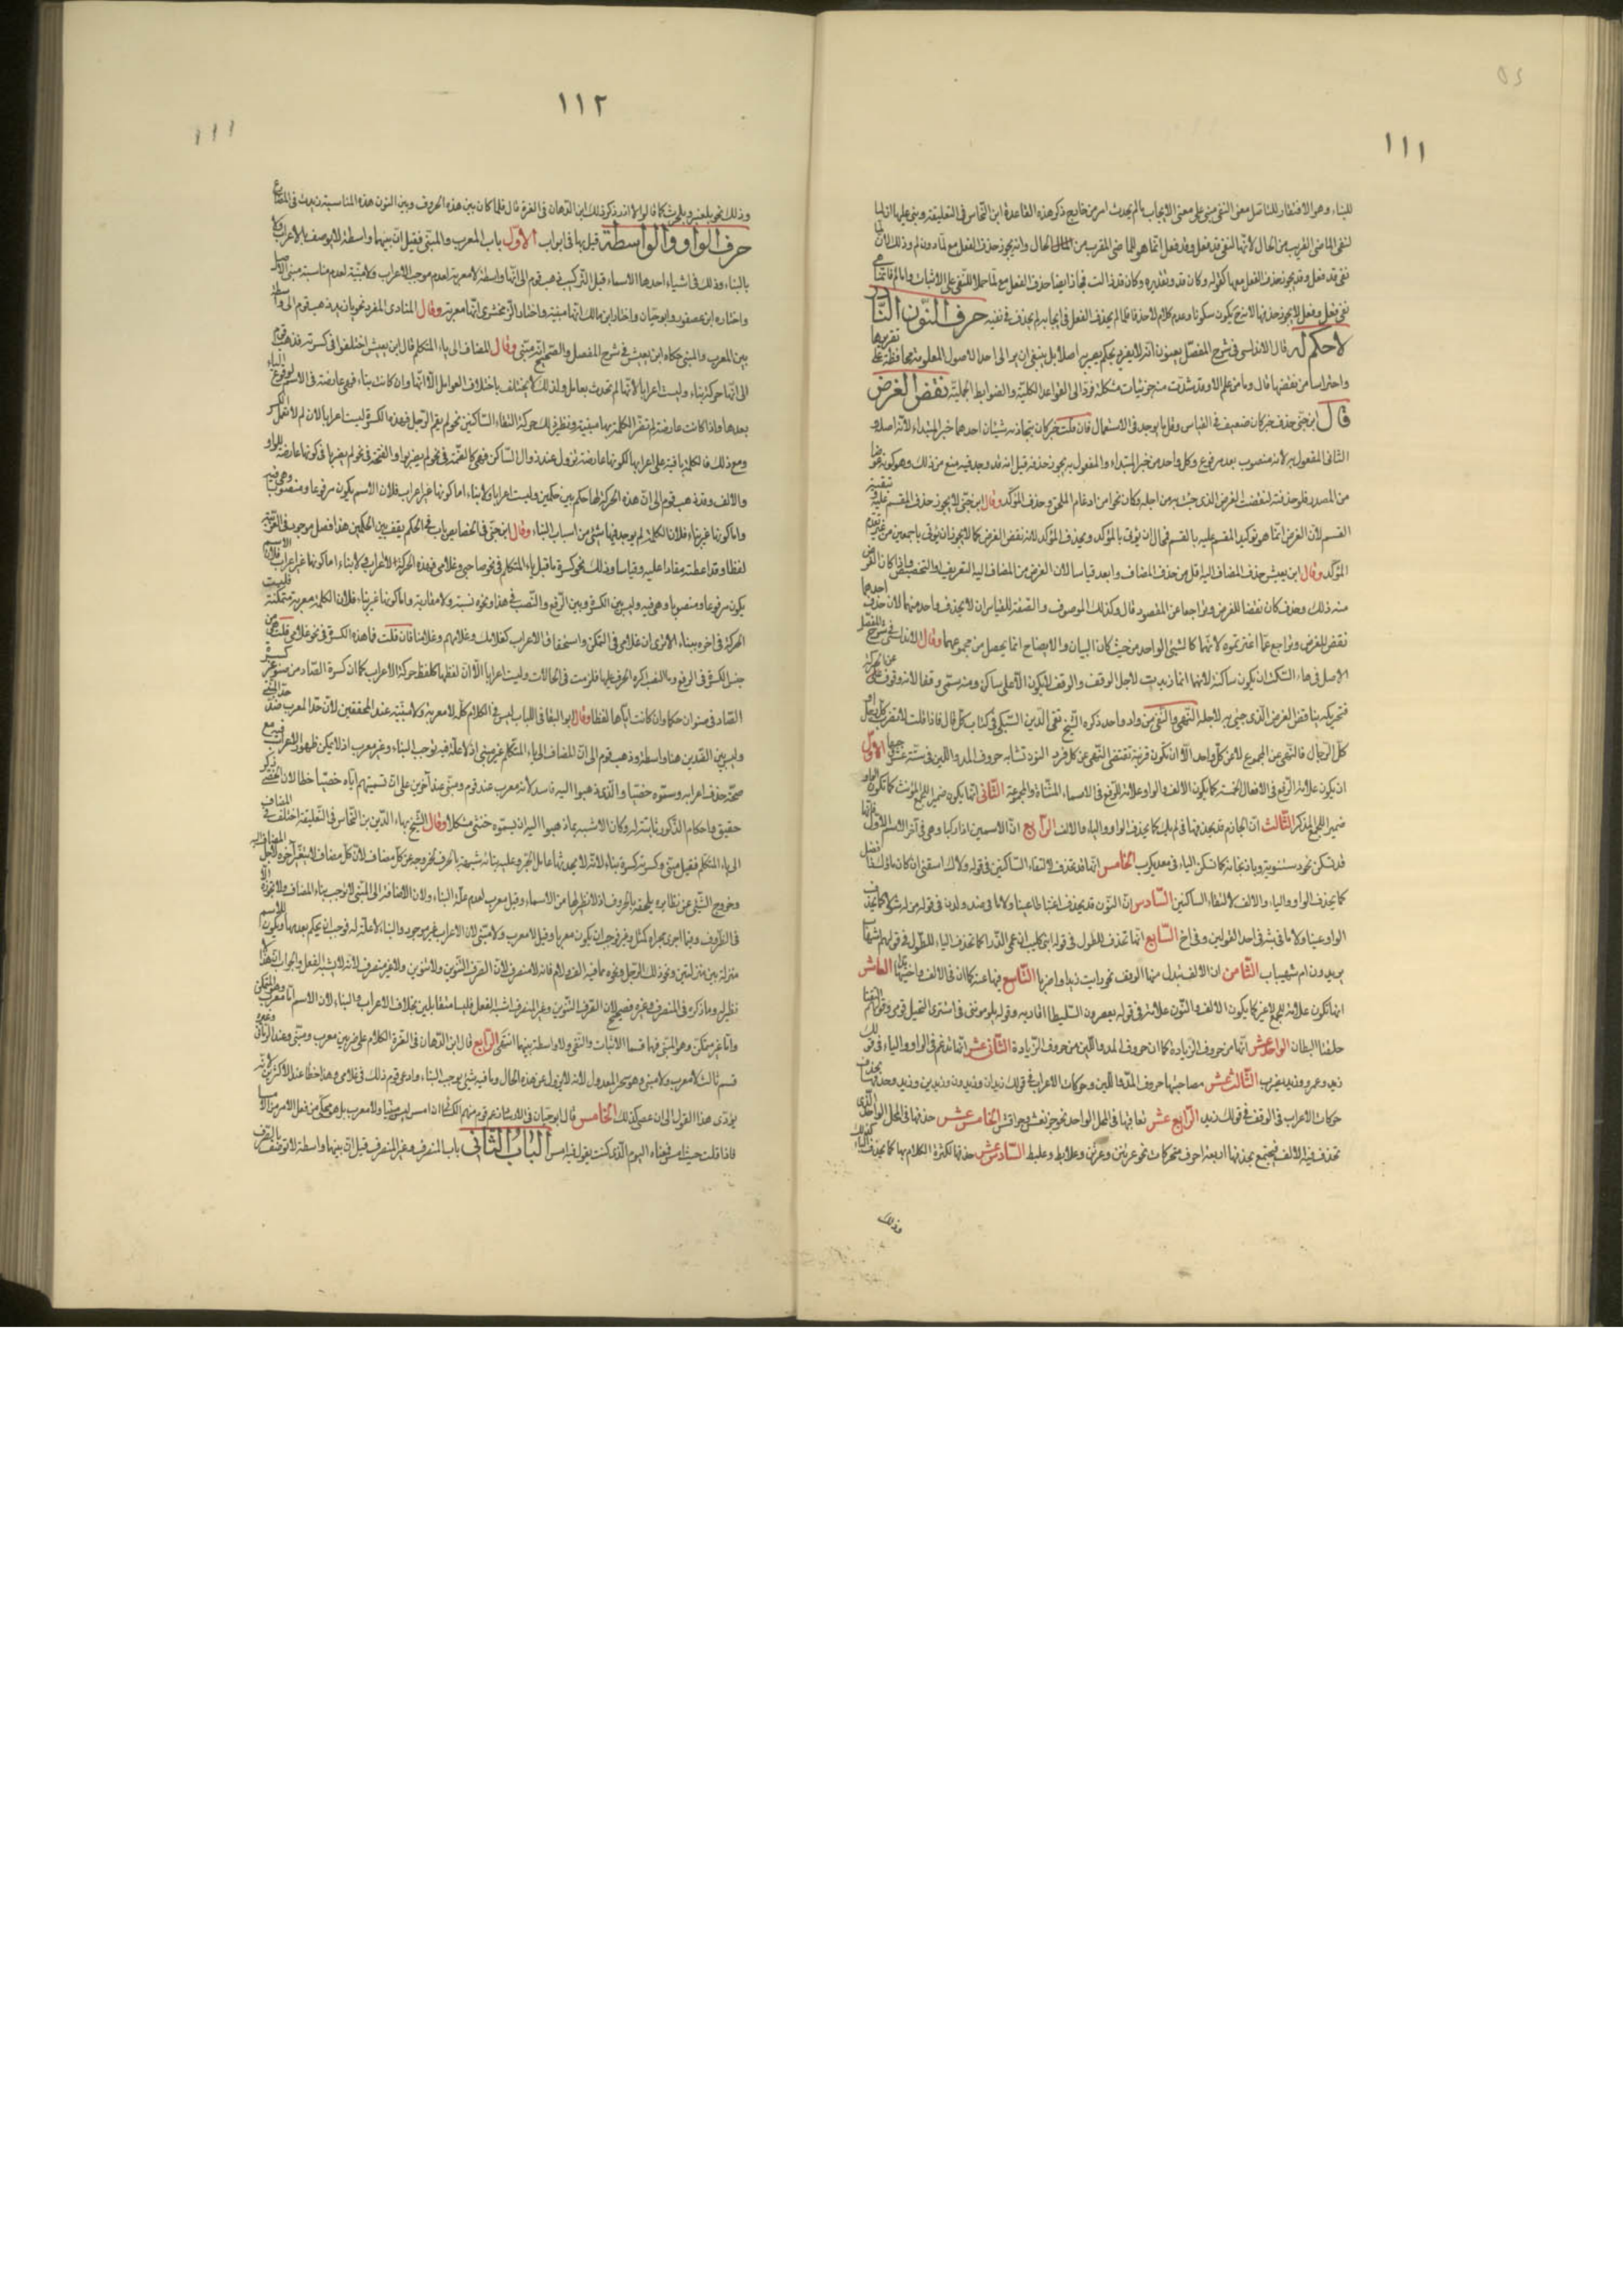 ١١١
للبناء وهو الافتقار للناصل معنى النفى مبنى على معنى الايجاب ما لم يحدث امر من خارج ذكر هذه القاعدة ابن النحاس فى التعليقة وبنى عليها ان لما
لنفى الماضى القريب من الحال لانها لنفى قد فعل وقد فعل انما هو للماضى المقرب من الحال وانه يجوز حذف الفعل مع لما دون لم وذلك لان لما
نفى قد فعل وقد يجوز حذف الفعل معها كقوله وكان قد وتقديره وكان قد زالت فجاز ايضا حذف الفعل مع لما حملا للنفى على الاثبات واما لم فانما هى
نفى فعل وفعل لا يجوز حذفها حرف النون النادر
لا حكم له قال الاندلسى فى شرح المفصل يعنون انه لا يفرد بحكم يصير اصلا بل ينبغى ان يرد الى احد الاصول المعلومة محافظة على تقريرها
واحتراسا من نقضها قال وما من علم الا وقد شذت منه جزئيات مشكلة فترد الى القواعد الكلية والضوابط الجملية نقض الغرض
قال ابن جنى حذف خبر كان ضعيف فى القياس وقل ما يوجد فى الاستعمال فان قلت خبر كان يتجاذبه شيئان احدهما خبر المبتداء لانه اصله و
الثانى المفعول به لانه منصوب بعد مرفوع وكل واحد من خبر المبتداء والمفعول به يجوز حذفه قيل انه قد وجد فيه منع من ذلك وهو كونه عوضا
من المصدر فلو حذفته لنقضت الغرض الذى جئت به من اجله وكان نحوا من ادغام الملحق وحذف المؤكد وقال ابن جنى لا يجوز حذف المقسم عليه وتبقية
القسم لان الغرض انما هو توكيد المقسم عليه بالقسم فمحال ان يؤتى بالمؤكد ويحذف المؤكد لانه نقض الغرض كما لا يجوز ان يؤتى باجمعين من غير تقدم
المؤكد وقال ابن يعيش حذف المضاف اليه اقل من حذف المضاف وابعد قياسا لان الغرض من المضاف اليه التعريف او التخصيص واذا كان الغرض
منه ذلك وحذف كان نقضا للغرض وتراجعا عن المقصود قال وكذلك الموصوف والصفة للقياس ان لا يحذف واحد منهما لان حذف احدهما
نقض للغرض وتراجع عما اعتزموه لانهما كالشئ الواحد من حيث كان البيان والايضاح انما يحصل من مجموعهما وقال الاندلسى فى شرح المفصل
الاصل فى هاء السكت ان يكون ساكنة لانها انما زيدت لاجل الوقف والوقف لا يكون الا على ساكن ومنه سمى وقفا لانه وقوف عن الحركة
فتحريكه يناقض الغرض الذى جئ به لاجله النهى والنفى من واد واحد ذكره الشيخ تقى الدين السبكى فى كتاب كل قال فاذا قلت لا تضرب كل رجل او
كل الرجال فالنهى عن المجموع لا عن كل واحد الا ان تكون قرينة تقتضى النهى عن كل فرد النون تشابه حروف المد واللين فى ستة عشر وجها الاول
ان يكون علامة الرفع فى الافعال الخمسة كما يكون الالف والواو علامة للرفع فى الاسماء المثناة والمجموعة الثانى انها يكون ضميرا للجمع المؤنث كما تكون الواو
ضميرا للجمع المذكر الثالث ان الجازم قد يحذفها فى لم يك كما يحذف الواو والياء والالف الرابع ان الاسمين اذا ركبا وهى فى آخر الاسم الاول فانها
قد تسكن نحو دستنويه وباذنجانة كما تسكن الياء فى معديكرب الخامس انها قد تحذف لالتقاء الساكنين فى قوله ولاك اسقنى ان كان ماؤك ذا فضل
كما يحذف الواو والياء والالف لالتقاء الساكنين السادس ان النون قد يحذف اعتباطا عينا ولاما فى منذ ولدن فى قوله من لد شولا كما يحذف
الواو عينا ولاما فى ثبة فى احد القولين وفى اخ السابع انها تحذف للطول فى قوله ابنى كليب ان عمى اللذا كما تحذف الياء للطول فى قولهم اشهباب
يريدون اشهيباب الثامن ان الالف تبدل منها الوقف نحو رايت زيدا واضربا التاسع العاشر
انها تكون علامة للجمع لا غير كما يكون الالف والنون علامة فى قوله يعصرون السليط اقاربه وقوله يلوموننى فى اشترى النخيل قومى وقولهم التقتا
حلقتا البطان الحادى عشر انها من حروف الزيادة كما ان حروف المد واللين من حروف الزيادة الثانى عشر انها تدغم فى الواو والياء فى قولك
زيد وعمرو وزيد يضرب الثالث عشر مصاحبتها حروف المد واللين وحركات الاعراب فى قولك زيدان وزيدون وزيدين وزيد وحذفها بحذف
حركات الاعراب فى الوقف فى قولك زيد الرابع عشر تعاقبها فى المحل الواحد نحو جرنفش وجرافش الخامس عشر حذفها فى المحل الواحد الذى
تحذف فيه الالف فيجتمع بحذفها اربعة احرف متحركات نحو عرتن وعرنتن وعلابط وعلبط السادس عشر حذفها لكثرة الكلام بها كما يحذف الياء كذلك
وذلك
١١٢
١١١
وذلك نحو بلعنبر وبلحرث كما قالوا لا ادر ذكر ذلك ابن الدهان فى الغرة قال فلما كان بين هذه الحروف وبين النون هذه المناسبة زيدت فى المضارع
حرف الواو والواسطة قيل بها فى ابواب الاول باب المعرب والمبنى فقيل ان بينهما واسطة لا يوصف بالاعراب ولا
بالبناء وذلك فى اشياء احدها الاسماء قبل التركيب ذهب قوم الى انها واسطة لا معربة لعدم موجب الاعراب ولا مبنية لعدم مناسبة مبنى الاصل
واختاره ابن عصفور وابو حيان واختار ابن مالك انها مبنية واختار الزمخشرى انها معربة وقال المنادى المفرد نحو يا زيد ذهب قوم الى واسطة
بين المعرب والمبنى حكاه ابن يعيش فى شرح المفصل والصحيح انه مبنى وقال المضاف الى ياء المتكلم قال ابن يعيش اختلفوا فى كسرته فذهب قوم
الى انها حركة بناء وليست اعرابا لانها لم تحدث بعامل ولذلك لا يختلف باختلاف العوامل الا انها وان كانت بناء فهى عارضة فى الاسم لوقوع الياء
بعدها واذا كانت عارضة لم تصر الكلمة بها مبنية ونظير ذلك حركة التقاء الساكنين نحو لم يقم الرجل فهذه الكسرة ليست اعرابا لان لم لا تعمل الكسر
ومع ذلك فالكلمة باقية على اعرابها لكونها عارضة تزول عند زوال الساكن فهى كالضمة فى نحو لم يضربوا والفتحة فى نحو لم يضربا فى كونها عارضة للواو
والالف وقد ذهب قوم الى ان هذه الحركة لها حكم بين حكمين وليست اعرابا ولا بناء اما كونها غير اعراب فلان الاسم يكون مرفوعا ومنصوبا وهى فيه
واما كونها غير بناء فلان الكلمة لم يوجد فيها شئ من اسباب البناء وقال ابن جنى فى الخصائص باب فى الحكم يقف بين الحكمين هذا فصل موجود فى العربية
لفظا وقد اعطته مقادا عليه وقياسا وذلك نحو كسرة ما قبل ياء المتكلم فى نحو صاحبى وغلامى فهذه الحركة لا اعراب ولا بناء اما كونها غير اعراب فلان الاسم
يكون مرفوعا ومنصوبا وهى فيه وليس بين الكسرة وبين الرفع والنصب فى هذا ونحوه نسبة ولا مقاربة واما كونها غير بناء فلان الكلمة معربة متمكنة فليست
الحركة فى اخره ببناء الا ترى ان غلامى فى التمكن واستحقاق الاعراب كغلامك وغلامهم وغلامنا فان قلت فما هذه الكسرة فى نحو غلامى قلت هى من
جنس الكسرة فى الرفع والنصب اكره الحرف عليها فلزمت فى الحالات وليست اعرابا الا ان لفظها كلفظ حركة الاعراب كما ان كسرة الصاد من صنو غير كسرة
الصاد فى صنوان حكما وان كانت اياها لفظا وقال ابو البقا فى اللباب ليس فى الكلام كلمة لا معربة ولا مبنية عند المحققين لان حد المعرب ضد حد المبنى
وليس بين الضدين هنا واسطة وذهب قوم الى ان المضاف الى ياء المتكلم غير مبنى اذ لا علة فيه توجب البناء وغير معرب اذ لا يمكن ظهور الاعراب فيه مع
صحة حذف اعرابه وسموه خصيا والذى ذهبوا اليه فاسد لانه معرب عند قوم ومبنى عند آخرين على ان تسميتهم اياه خصيا خطا لان الخصى ذكر
حقيق واحكام الذكور ثابتة له وكان الاشبه بما ذهبوا اليه ان يسموه خنثى مشكلا وقال الشيخ بهاء الدين بن النحاس فى التعليقة اختلف فى المضاف
الى ياء المتكلم فقيل مبنى وكسرته كسرة بناء لانه لا يحدثها عامل الجر وعلة بنائه شبهه بالحرف لخروجه عن كل مضاف لان كل مضاف لا يتغير آخره لاجل المضاف اليه
وخروج الشئ عن نظائره يلحقه بالحروف اذ لا نظير لها من الاسماء وقيل معرب لعدم علة البناء ولان الاضافة الى المبنى لا توجب بناء المضاف ولا تجوزه الا
فى الظروف وفيما اجرى مجراه كمثل وغير فوجب ان يكون معربا وقيل لا معرب ولا مبنى لان الاعراب غير موجود والبناء لا علة له فوجب ان يحكم بعدمها ويكون للاسم
منزلة بين منزلتين ونحو ذلك الرجل ونحوه مما فيه الف ولام فانه لا منصرف لان الصرف التنوين ولا تنوين ولا غير منصرف لانه لا يشبه الفعل والجواب ان هذا
نظير له وما ذكره فى المنصرف وغيره فصحيح لان الصرف التنوين وغير المنصرف اشبه الفعل فليسا متقابلين بخلاف الاعراب والبناء لان الاسم اما معرب وهو المتمكن
واما غير متمكن وهو المبنى فهما قسما الاثبات والنفى ولا واسطة بينهما انتهى الرابع قال ابن الدهان فى الغرة الكلام على ضربين معرب ومبنى وعند الرمانى وغيره
قسم ثالث لا معرب ولا مبنى وهو سحر المعدول لانه لا يزول عن هذه الحال وما فيه شئ يوجب البناء وادعى قوم ذلك فى غلامى وهذا خطأ عند الاكثرين لانه
يؤدى هذا القول الى ان عصى كذلك الخامس قال ابو حيان فى الارتشاف زعم قوم منهم الكسائى ان امس ليس مبنيا ولا معربا بل هو محكى من فعل الامر من الامساء
فاذا قلت جئت امس فمعناه اليوم الذى كنت تقول فيه امس الباب الثانى باب المنصرف وغير المنصرف قيل ان بينهما واسطة لا توصف بالصرف